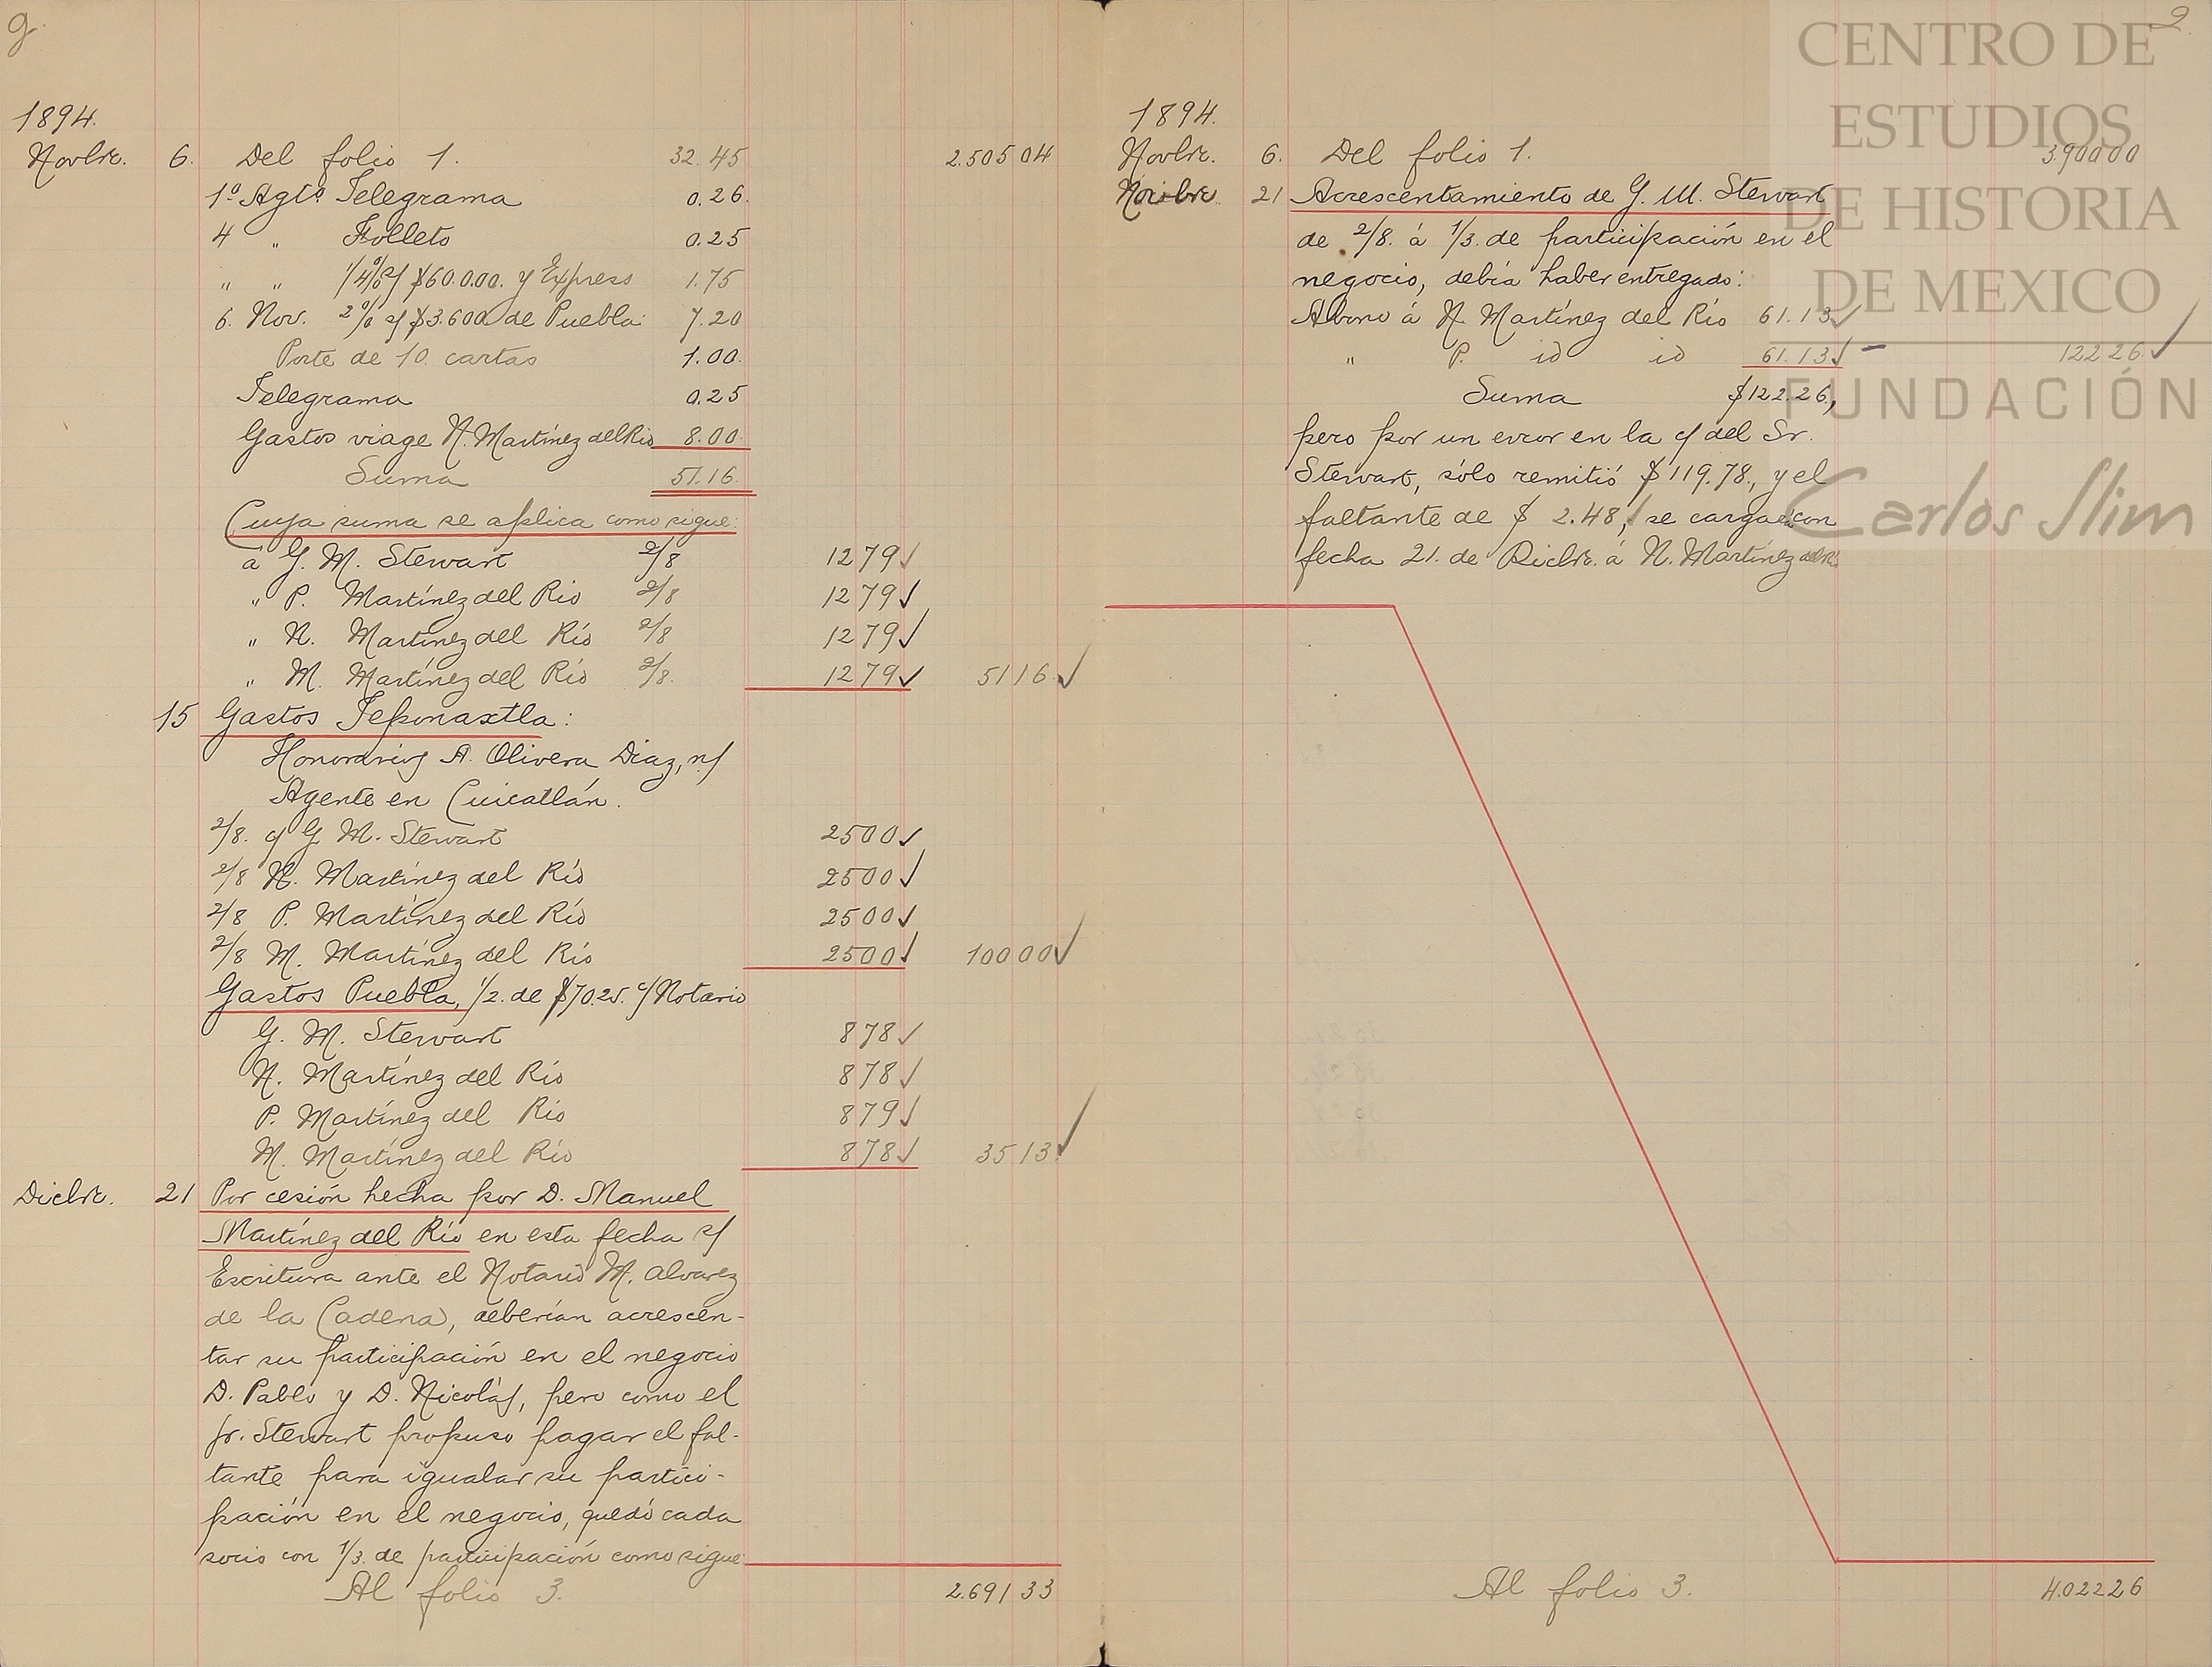 2
1894.
Novbre. 6. Del folio 1. 32.45 2.505 04
1º Agtº Telegrama 0.26.
4 " Folleto 0.25
" " 1/4% s/ $60.0.00. y Express 1.75
6. Nov. 2% s/ $3.600 de Puebla 7.20
Porte de 10. cartas 1.00.
Telegrama 0.25
Gastos viage N. Martínez del Rio 8.00.
Suma 51.16.
Cuya suma se aplica como sigue:
a G. M. Stewart 2/8 12 79✓
" P. Martínez del Rio 2/8 12 79✓
" N. Martínez del Río 2/8 12 79✓
" M. Martínez del Río 2/8. 12 79✓ 51 16✓
15 Gastos Teponaxtla:
Honorarios A. Olivera Diaz, n/
Agente en Cuicatlán.
2/8. c/ G. M. Stewart 25 00✓
2/8 N. Martínez del Río 25 00✓
2/8 P. Martínez del Río 25 00✓
2/8 M. Martínez del Río 25 00✓ 100 00✓
Gastos Puebla, 1/2. de $70.25. c/ Notario
G. M. Stewart 8 78✓
N. Martínez del Río 8 78✓
P. Martínez del Río 8 79✓
M. Martínez del Río 8 78✓ 35 13✓
Dicbre. 21 Por cesión hecha por D. Manuel
Martínez del Río en esta fecha s/
Escritura ante el Notario M. Alvarez
de la Cadena, deberían acrescen-
tar su participación en el negocio
D. Pablo y D. Nicolás, pero como el
Sr. Stewart propuso pagar el fal-
tante para igualar su partici-
pación en el negocio, quedó cada
socio con 1/3. de participación como sigue
Al folio 3. 2.691 33
2.
1894.
Novbre. 6. Del folio 1. 3.900 00
Novbre. 21 Acrescentamiento de G. M. Stewart
de 2/8. á 1/3. de participación en el
negocio, debía haber entregado:
Abono á N. Martínez del Río 61.13✓
" P. id id 61.13✓ 122 26✓
Suma $122.26,
pero por un error en la c/ del Sr.
Stewart, sólo remitió $119.78., y el
faltante de $ 2.48, se carga con
fecha 21. de Dicbre. á N. Martínez del Río
Al folio 3. 4.022 26
CENTRO DE
ESTUDIOS
DE HISTORIA
DE MEXICO
FUNDACIÓN
Carlos Slim